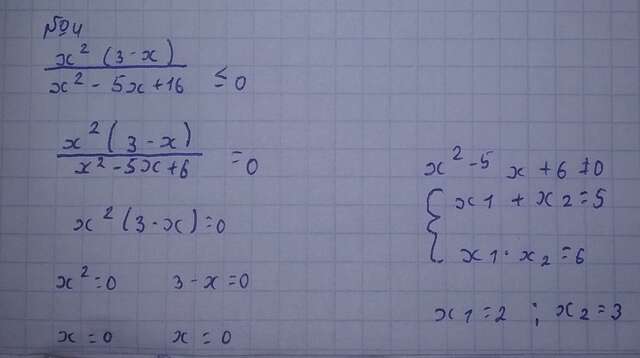 №4
x² (3 - x)
x² - 5x + 16 ≤ 0
x² (3 - x)
x² - 5x + 6 = 0
x² (3 - x) = 0
x² = 0 3 - x = 0
x = 0 x = 0
x² - 5 x + 6 ≠ 0
x1 + x2 = 5
x1 · x2 = 6
x1 = 2 ; x2 = 3